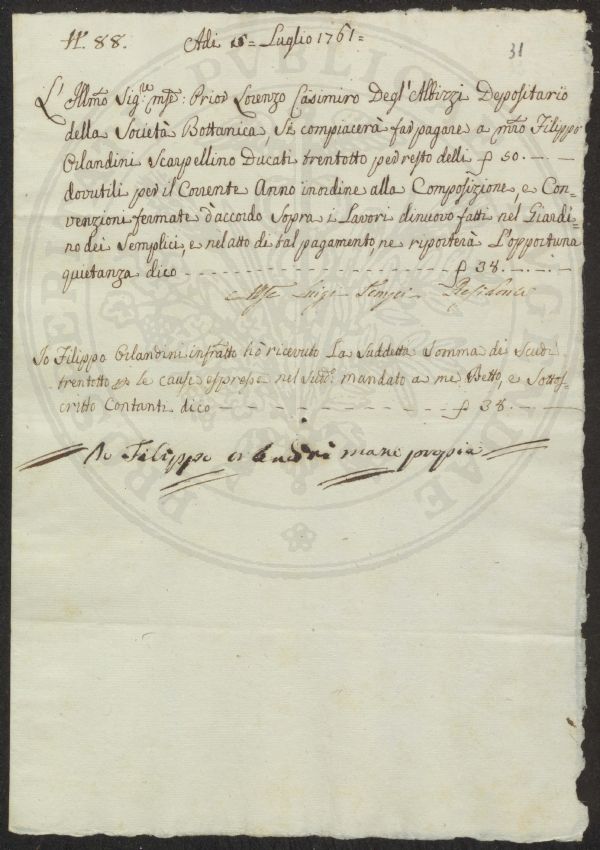 N. 88. Adi 15 = Luglio 1761 =
31
L' Illmo Sigre Prior Lorenzo Casimiro Degl'Albizzi Depositario
della Società Bottanica, Si compiacerà far pagare a mro Filippo
Orlandini Scarpellino Ducati trentotto per resto delli 50. — —
dovutili per il Corrente Anno in ordine alla Composizione, e Con-
venzioni fermate d'accordo Sopra i Lavori di nuovo fatti nel Giardi-
no dei Semplici, e nel atto di tal pagamento, ne riporterà L'opportuna
quietanza dico - - - - - - - - - - 38. — . —
Luigi Presidente
Io Filippo Orlandini infratto hò ricevuto La Suddetta Somma di Scudi
trentotto le cause espresse nel mandato a me Detto, e Sottos-
critto Contanti dico - - - - - - - - - - 38. — —
Io Filippo orlandini mano propia
PVBLICAE